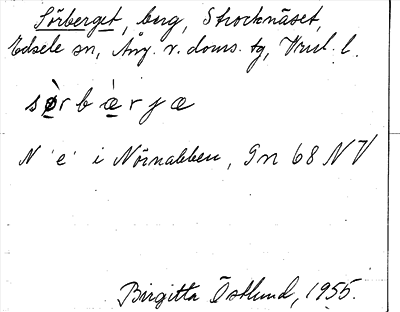 Sörberget, berg, Strocknäset,
Edsele sn, Ång. v. doms. tg, Vnl. l.
sørbærjæ
N 'e' i Nörnabben, Gn 68 NV
Birgitta Östlund, 1955.